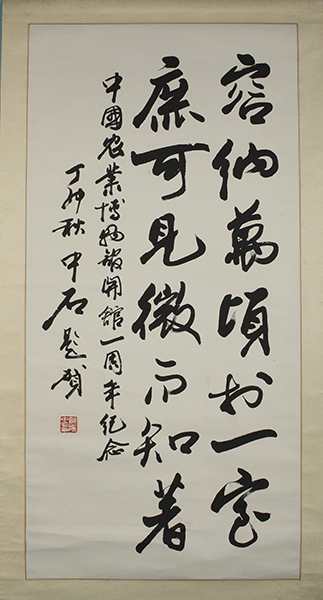 容纳萬頃於一室
庶可見微而知著
中國农業博物馆開館一周年纪念
丁卯秋中石题贺